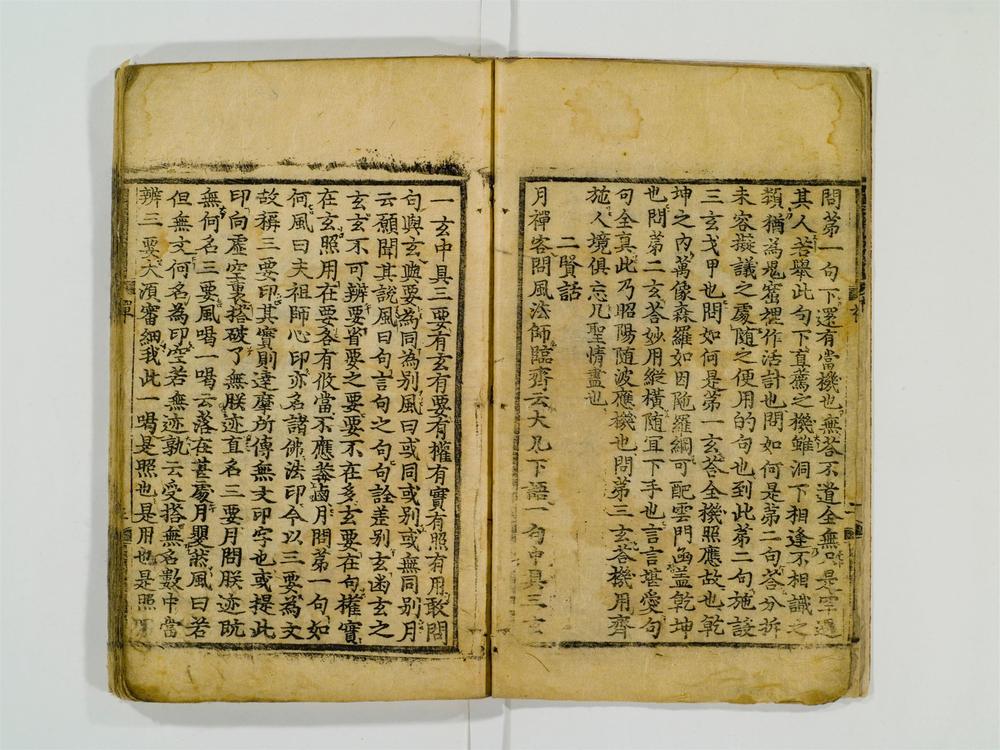 問第一句下還有當機也無答不遺全無只是罕遇
其人若擧此句下直薦之機雖洞下相逢不相識之
類猶為鬼窟裡作活計也問如何是第二句答分拆
未容擬議之處随之便用的句也到此第二句施設
三玄戈甲也問如何是第一玄答全機照應故也乾
坤之內萬像森羅如因陁羅綱可配雲門函盖乾坤
也問第二玄答妙用縱橫随冝下手也言言堪愛句
句全真此乃昭陽随波應機也問第三玄答機用齊
施人境俱忘凡聖情盡也
二賢話
月禪客問風法師臨齊云大凡下語一句中具三玄
一玄中具三要有玄有要有權有實有照有用敢問
句與玄與要為同為别風曰或同或别或無同别月
云願聞其說風曰句言句之句句詮差别玄函玄之
玄玄不可辨要省要之要要不在多玄要在句權實
在玄照用在要各有攸當不應莽鹵月問第一句如
何風曰夫祖師心印亦名諸佛法印今以三要為文
故稱三要印其實則達摩所傳無文印字也或提此
印向虛空裏搭破了無朕迹直名三要月問朕迹旣
無何名三要風喝一喝云落在甚處月瞿然風曰若
但無文何名為印空若無迹孰云受搭無名數中當
辨三要大湏審細我此一喝是照也是用也是照
禪